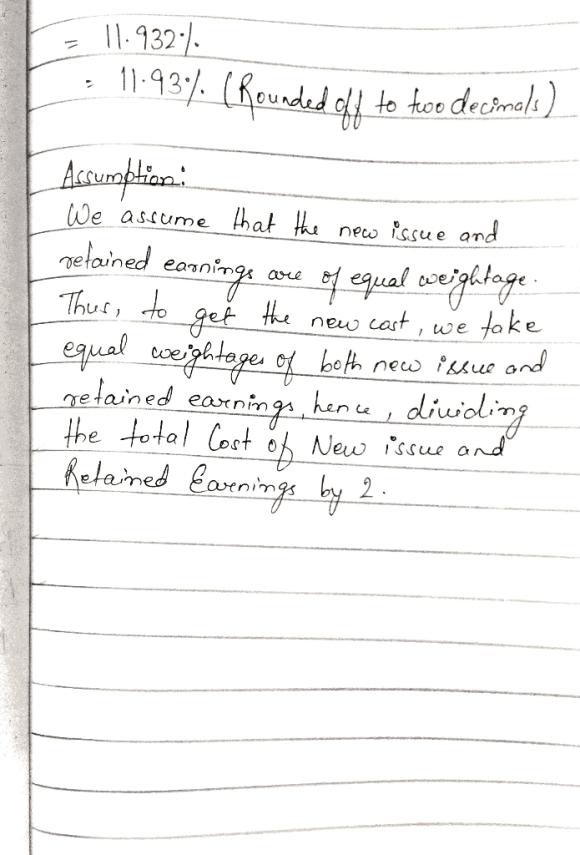 = 11.932%.
= 11.93%. (Rounded off to two decimals)
Assumption:
We assume that the new issue and
retained earnings are of equal weightage.
Thus, to get the new cost, we take
equal weightages of both new issue and
retained earnings, hence, dividing
the total Cost of New issue and
Retained Earnings by 2.